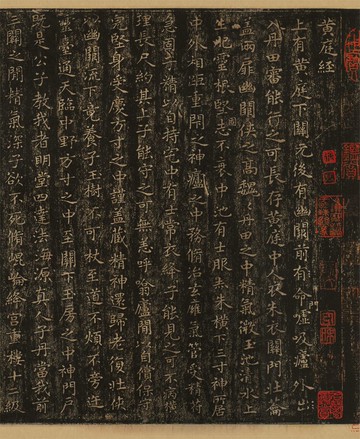 黃庭經
上有黃庭下關元後有幽闕前有命門噓吸廬外出
入丹田審能行之可長存黃庭中人衣朱衣關門壯籥
蓋兩扉幽闕俠之高巍巍丹田之中精氣微玉池清水上
生肥靈根堅志不衰中池有士服赤朱橫下三寸神所居
中外相距重閉之神廬之中務修治玄癕氣管受精符
急固子精以自持宅中有士常衣絳子能見之可不病橫
理長尺約其上子能守之可無恙呼噏廬間以自償保守
完堅身受慶方寸之中謹蓋藏精神還歸老復壯俠
以幽闕流下竟養子玉樹不可杖至道不煩不旁迕
靈臺通天臨中野方寸之中至關下玉房之中神門戶
既是公子教我者明堂四達法海源真人子丹當我前
三關之間精氣深子欲不死修崐崘絳宮重樓十二級